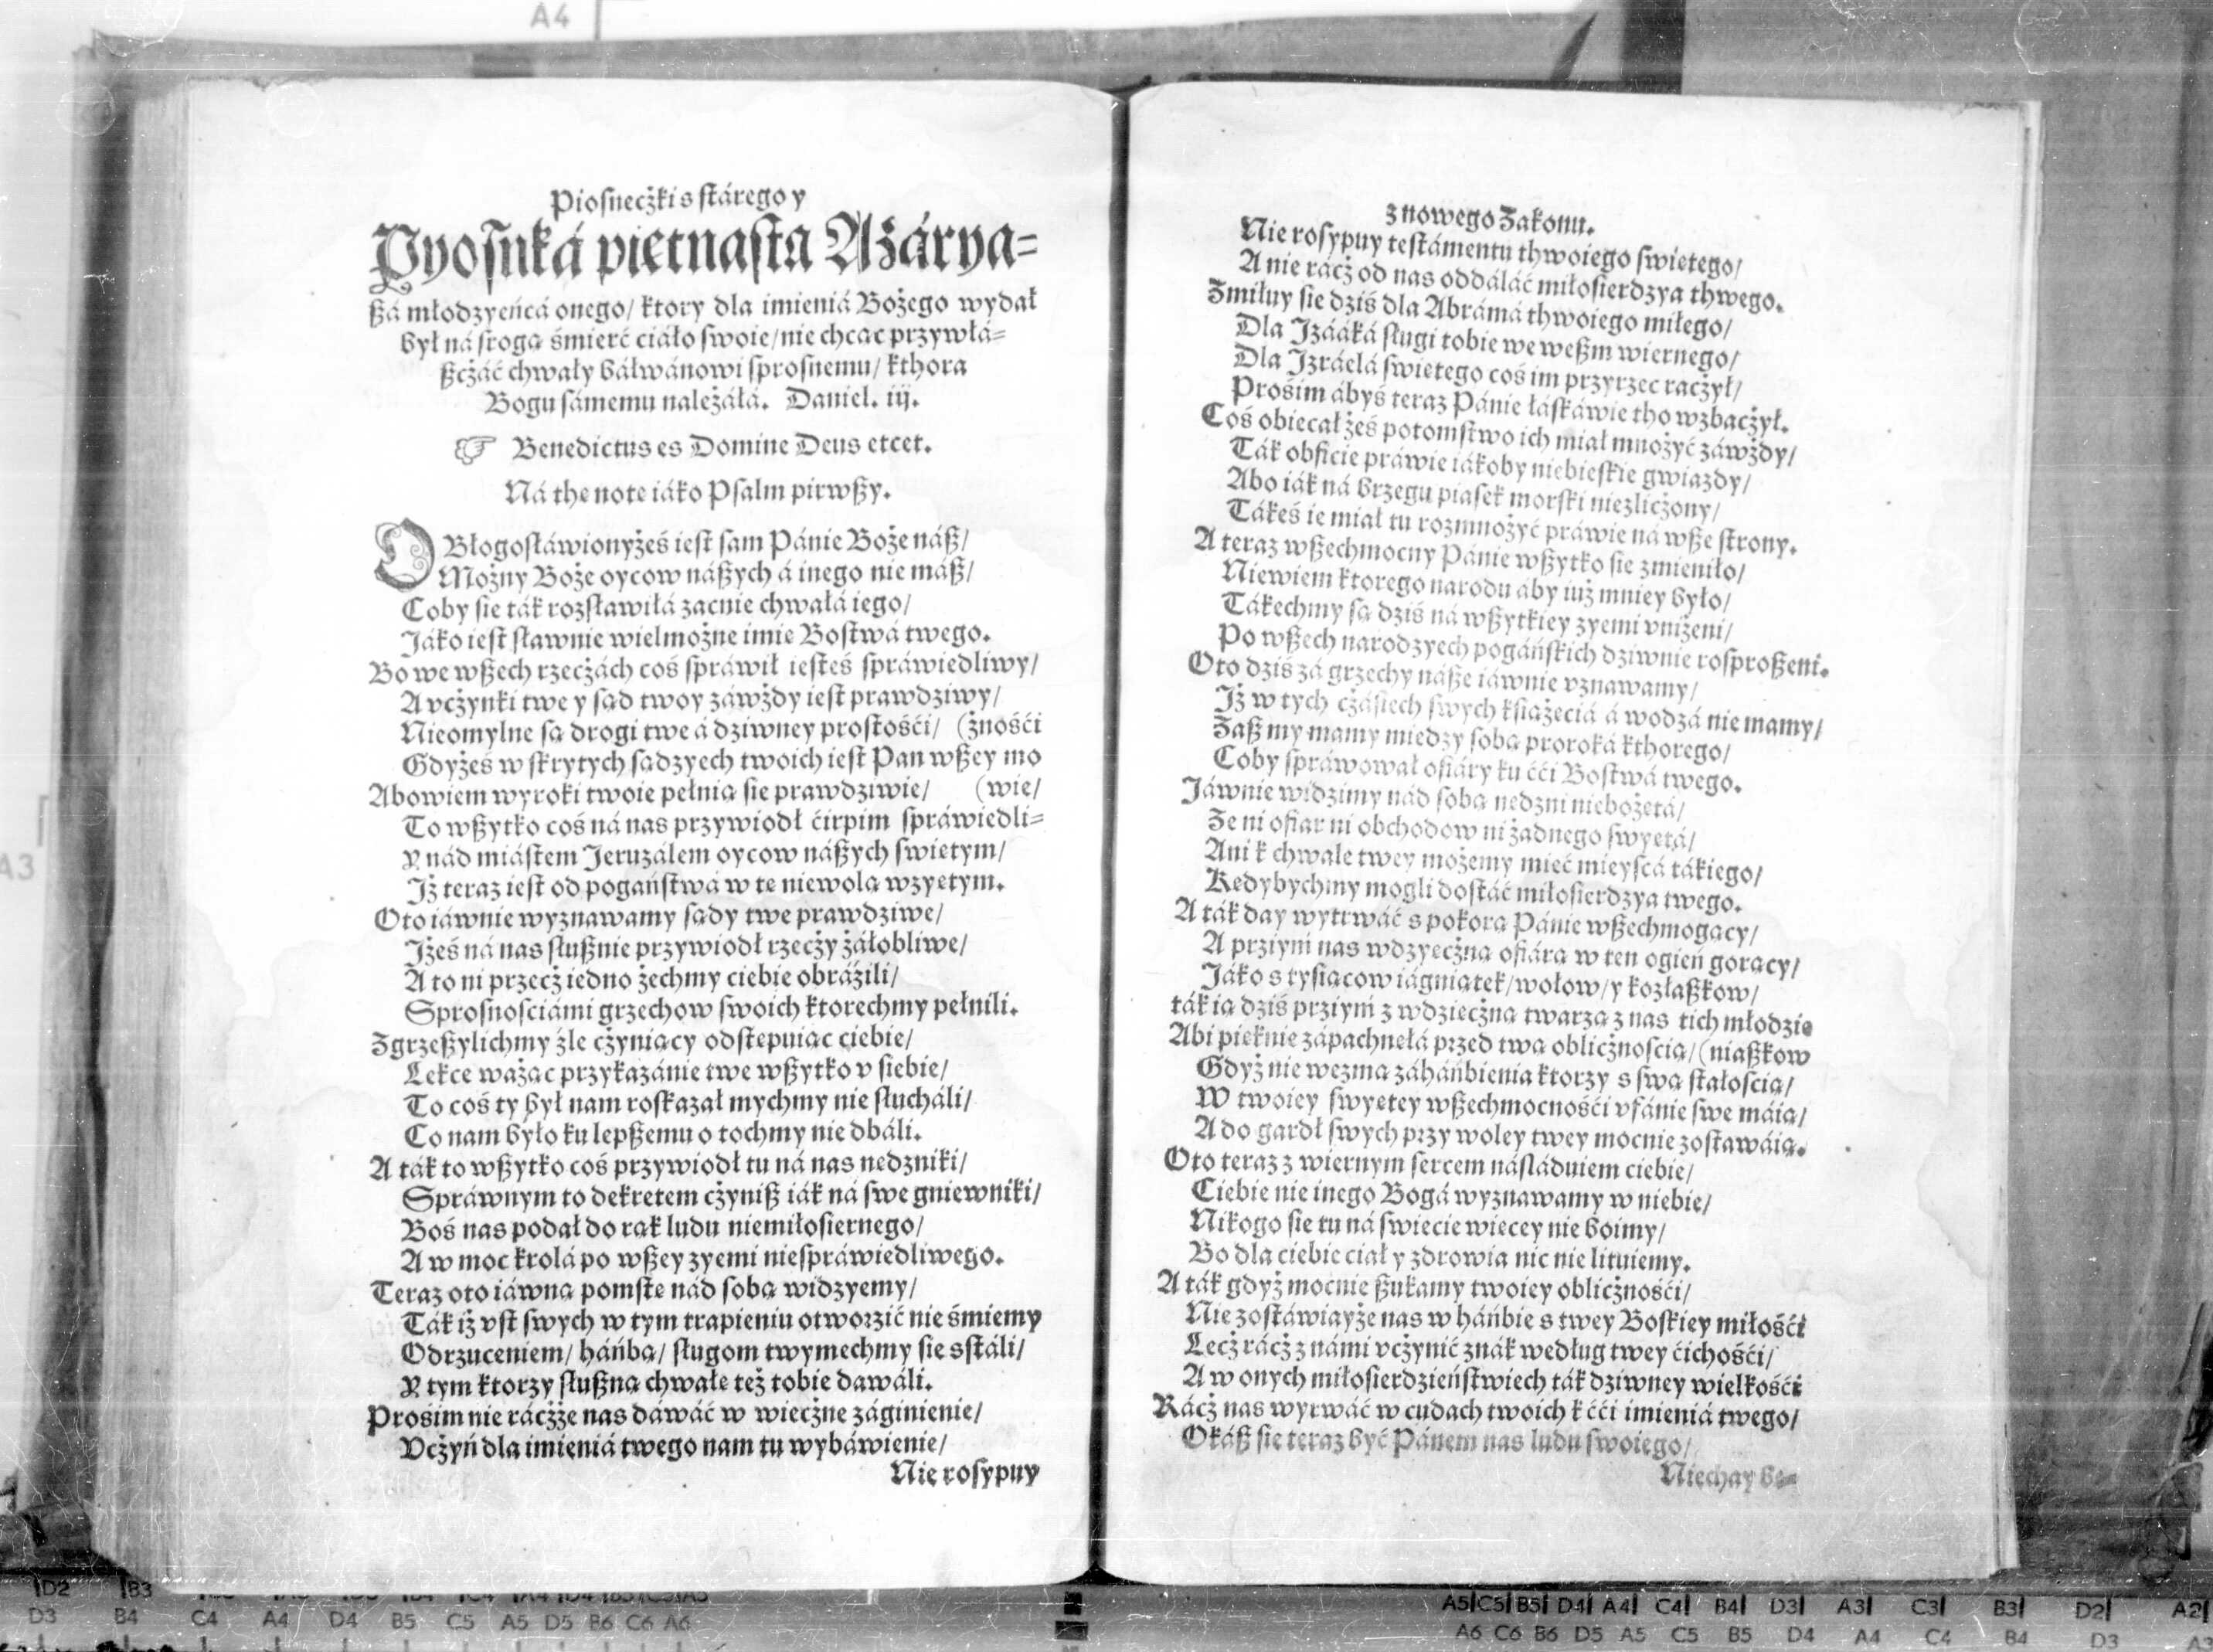 Piosnecżki s stárego y
Pyosnká pietnasta Ażárya=
ßá młodzyeńcá onego/ ktory dla imieniá Bożego wydał
był ná srogą śmierć ciáło swoie/ nie chcąc przywłá=
ßcżáć chwały báłwánowi sprosnemu/ kthora
Bogu sámemu należáłá. Daniel. iij.
☞ Benedictus es Domine Deus etcet.
Ná the note iáko Psalm pirwßy.
O Błogosłáwionyżeś iest sam Pánie Boże náß/
Możny Boże oycow náßych á inego nie máß/
Coby sie ták rozsławiłá zacnie chwałá iego/
Jáko iest sławnie wielmożne imie Bostwá twego.
Bo we wßech rzecżách coś spráwił iesteś spráwiedliwy/
A vcżynki twe y sąd twoy záwżdy iest prawdziwy/
Nieomylne są drogi twe á dziwney prostośći/ (żnośći
Gdyżeś w skrytych sądzyech twoich iest Pan wßey mo
Abowiem wyroki twoie pełnią sie prawdziwie/ (wie/
To wßytko coś ná nas przywiodł ćirpim spráwiedli=
Y nád miástem Jeruzálem oycow náßych swietym/
Jż teraz iest od pogáństwá w te niewolą wzyetym.
Oto iáwnie wyznawamy sądy twe prawdziwe/
Jżeś ná nas słußnie przywiodł rzecży żáłobliwe/
A to ni przecż iedno żechmy ciebie obráźili/
Sprosnosciámi grzechow swoich ktorechmy pełnili.
Zgrzeßylichmy źle cżyniący odstepuiąc ciebie/
Lekce ważąc przykazánie twe wßytko v siebie/
To coś ty był nam roskazał mychmy nie słucháli/
Co nam było ku lepßemu o tochmy nie dbáli.
A ták to wßytko coś przywiodł tu ná nas nedzniki/
Spráwnym to dekretem cżyniß iák ná swe gniewniki/
Boś nas podał do rąk ludu niemiłosiernego/
A w moc krolá po wßey zyemi niespráwiedliwego.
Teraz oto iáwną pomste nád sobą widzyemy/
Ták iż vst swych w tym trapieniu otworzić nie śmiemy
Odrzuceniem/ háńbą/ sługom twymechmy sie sstáli/
Y tym ktorzy słußną chwałe też tobie dawáli.
Prosim nie rácżże nas dáwáć w wiecżne záginienie/
Vcżyń dla imieniá twego nam tu wybáwienie/
Nie rosypuy
z nowego Zakonu.
Nie rosypuy testámentu thwoiego swietego/
A nie rácż od nas oddáláć miłosierdzya thwego.
Zmiłuy sie dziś dla Abrámá thwoiego miłego/
Dla Jzááká sługi tobie we weßm wiernego/
Dla Jzráelá swietego coś im przyrzec racżył/
Prośim ábyś teraz Pánie łáskáwie tho wzbacżył.
Coś obiecał żeś potomstwo ich miał mnożyć záwżdy/
Ták obficie práwie iákoby niebieskie gwiazdy/
Abo iák ná brzegu piasek morski niezlicżony/
Tákeś ie miał tu rozmnożyć práwie ná wße strony.
A teraz wßechmocny Pánie wßytko sie zmieniło/
Niewiem ktorego narodu áby iuż mniey było/
Tákechmy są dziś ná wßytkiey zyemi vniżeni/
Po wßech narodzyech pogáńskich dziwnie rosproßeni.
Oto dziś zá grzechy náße iáwnie vznawamy/
Jż w tych cżásiech swych książeciá á wodzá nie mamy/
Zaß my mamy miedzy sobą proroká kthorego/
Coby spráwował ofiáry ku ććí Bostwá twego.
Jáwnie widzimy nád sobą nedzni niebożetá/
Ze ni ofiar ni obchodow ni żadnego swyetá/
Ani k chwale twey możemy mieć mieyscá tákiego/
Kedybychmy mogli dostáć miłosierdzya twego.
A ták day wytrwáć s pokorą Pánie wßechmogący/
A prziymi nas wdzyecżną ofiárą w ten ogień gorący/
Jáko s tysiącow iágniątek/ wołow/ y kozłaßkow/
ták ią dziś prziymi z wdziecżną twarzą z nas tich młodzie
Abi pieknie zápachnełá przed twą oblicżnoscią/ (niaßkow
Gdyż nie wezmą záháńbienia ktorzy s swą stałoscią/
W twoiey swyetey wßechmocnośći vfánie swe máią/
A do gardł swych przy woley twey mocnie zostawáią.
Oto teraz z wiernym sercem násláduiem ciebie/
Ciebie nie inego Bogá wyznawamy w niebie/
Nikogo sie tu ná swiecie wiecey nie boimy/
Bo dla ciebie ciał y zdrowia nic nie lituiemy.
A ták gdyż mocnie ßukamy twoiey oblicżnośći/
Nie zostáwiayże nas w háńbie s twey Boskiey miłośći
Lecż rácż z námi vcżynić znák według twey ćichośći/
A w onych miłosierdzieństwiech ták dziwney wielkośći
Rácż nas wyrwáć w cudach twoich k ććí imieniá twego/
Okáß sie teraz być Pánem nas ludu swoiego/
Niechay be=